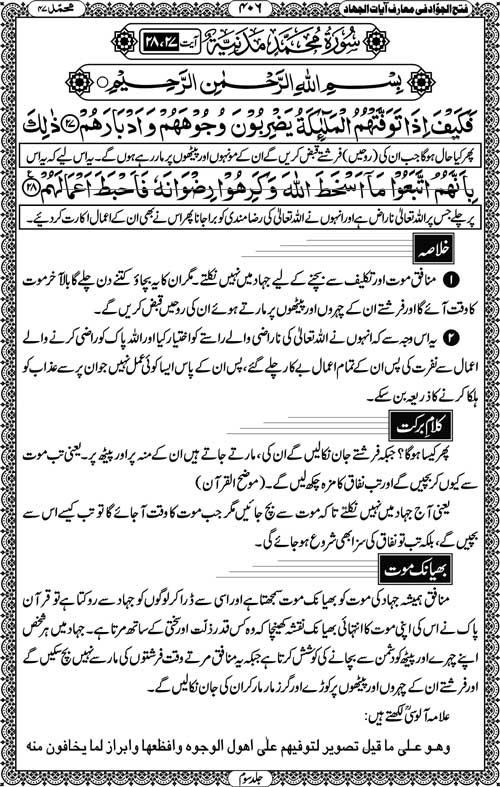 فتح الجوّاد فی معارف آیات الجہاد
۴۰۶
محمّد ۴۷
سُورَةُ مُحَمَّدٍ مَدَنِيَّةٌ
آیت ۲۷، ۲۸
بِسْمِ اللّٰهِ الرَّحْمٰنِ الرَّحِيْمِ
فَكَيْفَ اِذَا تَوَفَّتْهُمُ الْمَلٰٓئِكَةُ يَضْرِبُوْنَ وُجُوْهَهُمْ وَاَدْبَارَهُمْ ﴿۲۷﴾ ذٰلِكَ
پھر کیا حال ہوگا جب ان کی (روحیں) فرشتے قبض کریں گے ان کے مونہوں اور پیٹھوں پر مار رہے ہوں گے۔ یہ اس لیے کہ یہ اس
بِاَنَّهُمُ اتَّبَعُوْا مَآ اَسْخَطَ اللّٰهَ وَكَرِهُوْا رِضْوَانَهٗ فَاَحْبَطَ اَعْمَالَهُمْ ﴿۲۸﴾
پر چلے جس پر اللہ تعالیٰ ناراض ہے اور انہوں نے اللہ تعالیٰ کی رضا مندی کو برا جانا پھر اس نے بھی ان کے اعمال اکارت کر دیئے۔
خلاصہ
۱ منافق موت اور تکلیف سے بچنے کے لیے جہاد میں نہیں نکلتے۔ مگر ان کا یہ بچاؤ کتنے دن چلے گا بالآخر موت
کا وقت آئے گا اور فرشتے ان کے چہروں اور پیٹھوں پر مارتے ہوئے ان کی روحیں قبض کریں گے۔
۲ یہ اس وجہ سے کہ انہوں نے اللہ تعالیٰ کی ناراضی والے راستے کو اختیار کیا اور اللہ پاک کو راضی کرنے والے
اعمال سے نفرت کی پس ان کے تمام اعمال بے کار چلے گئے، پس ان کے پاس ایسا کوئی عمل نہیں جو ان پر سے عذاب کو
ہلکا کرنے کا ذریعہ بن سکے۔
کلامِ برکت
پھر کیسا ہوگا؟ جبکہ فرشتے جان نکالیں گے ان کی، مارتے جاتے ہیں ان کے منہ پر اور پیٹھ پر۔ یعنی تب موت
سے کیوں کر بچیں گے اور تب نفاق کا مزہ چکھ لیں گے۔ (موضح القرآن)
یعنی آج جہاد میں نہیں نکلتے تا کہ موت سے بچ جائیں مگر جب موت کا وقت آ جائے گا تو تب کیسے اس سے
بچیں گے، بلکہ تب تو نفاق کی سزا بھی شروع ہو جائے گی۔
بھیانک موت
منافق ہمیشہ جہاد کی موت کو بھیانک موت سمجھتا ہے اور اسی سے ڈرا کر لوگوں کو جہاد سے روکتا ہے تو قرآن
پاک نے اس کی اپنی موت کا انتہائی بھیانک نقشہ کھینچا کہ وہ کس قدر ذلّت اور سختی کے ساتھ مرتا ہے۔ جہاد میں ہر شخص
اپنے چہرے اور پیٹھ کو دشمن سے بچانے کی کوشش کرتا ہے جبکہ یہ منافق مرتے وقت فرشتوں کی مار سے نہیں بچ سکیں گے
اور فرشتے ان کے چہروں اور پیٹھوں پر کوڑے اور گرز مار مار کر ان کی جان نکالیں گے۔
علامہ آلوسیؒ لکھتے ہیں:
وهو على ما قيل تصوير لتوفيهم على اهول الوجوه وافظعها وابراز لما يخافون منه
جلد سوم